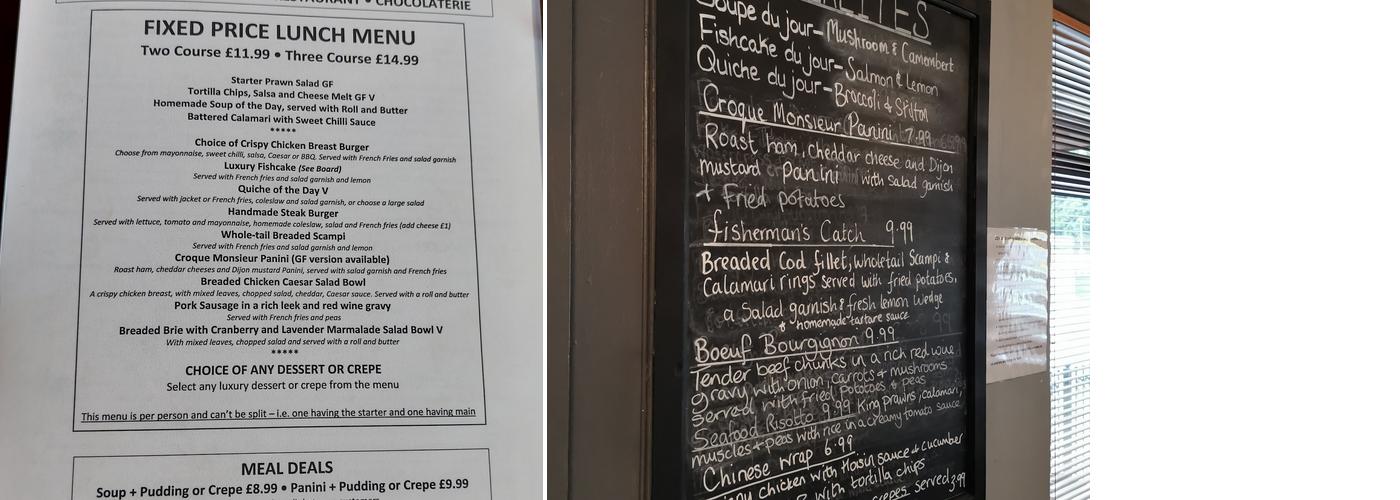 RESTAURANT • CHOCOLATERIE
FIXED PRICE LUNCH MENU
Two Course £11.99 • Three Course £14.99
Starter Prawn Salad GF
Tortilla Chips, Salsa and Cheese Melt GF V
Homemade Soup of the Day, served with Roll and Butter
Battered Calamari with Sweet Chilli Sauce
*****
Choice of Crispy Chicken Breast Burger
Choose from mayonnaise, sweet chilli, salsa, Caesar or BBQ. Served with French Fries and salad garnish
Luxury Fishcake (See Board)
Served with French fries and salad garnish and lemon
Quiche of the Day V
Served with jacket or French fries, coleslaw and salad garnish, or choose a large salad
Handmade Steak Burger
Served with lettuce, tomato and mayonnaise, homemade coleslaw, salad and French fries (add cheese £1)
Whole-tail Breaded Scampi
Served with French fries and salad garnish and lemon
Croque Monsieur Panini (GF version available)
Roast ham, cheddar cheeses and Dijon mustard Panini, served with salad garnish and French fries
Breaded Chicken Caesar Salad Bowl
A crispy chicken breast, with mixed leaves, chopped salad, cheddar, Caesar sauce. Served with a roll and butter
Pork Sausage in a rich leek and red wine gravy
Served with French fries and peas
Breaded Brie with Cranberry and Lavender Marmalade Salad Bowl V
With mixed leaves, chopped salad and served with a roll and butter
*****
CHOICE OF ANY DESSERT OR CREPE
Select any luxury dessert or crepe from the menu
This menu is per person and can't be split – i.e. one having the starter and one having main
MEAL DEALS
Soup + Pudding or Crepe £8.99 • Panini + Pudding or Crepe £9.99
Soupe du jour - Mushroom & Camembert
Fishcake du jour - Salmon & Lemon
Quiche du jour - Broccoli & Stilton
Croque Monsieur Panini 7.99
Roast ham, cheddar cheese and Dijon
mustard Panini with salad garnish
+ Fried potatoes
Fisherman's Catch 9.99
Breaded Cod fillet, wholetail Scampi &
Calamari rings served with fried potatoes,
a Salad garnish & fresh lemon wedge
& homemade tartare sauce
Boeuf Bourgignon 9.99
Tender beef chunks in a rich red wine
gravy with onion, carrots & mushrooms
served with fried potatoes & peas
Seafood Risotto 9.99 King prawns, calamari,
muscles + peas with rice in a creamy tomato sauce
Chinese wrap 6.99
chicken with Hoisin sauce & cucumber
with tortilla chips
crepes served 3.99